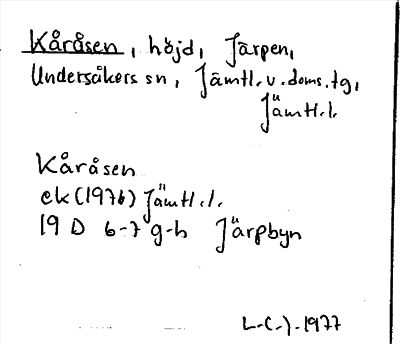 Kåråsen, höjd, Järpen,
Undersåkers sn, Jämtl. v. doms. tg,
Jämtl. l.
Kåråsen
ek (1976) Jämtl. l.
19 D 6-7 g-h Järpbyn
L-C-J-1977